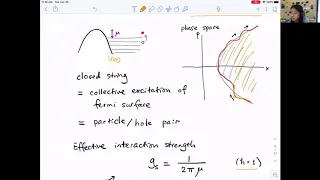 phase space
μ
p
V(x)
x
closed string
= collective excitation of
fermi surface
= particle/hole pair
Effective interaction strength
g_s = 1 / 2πμ (ħ = 1)